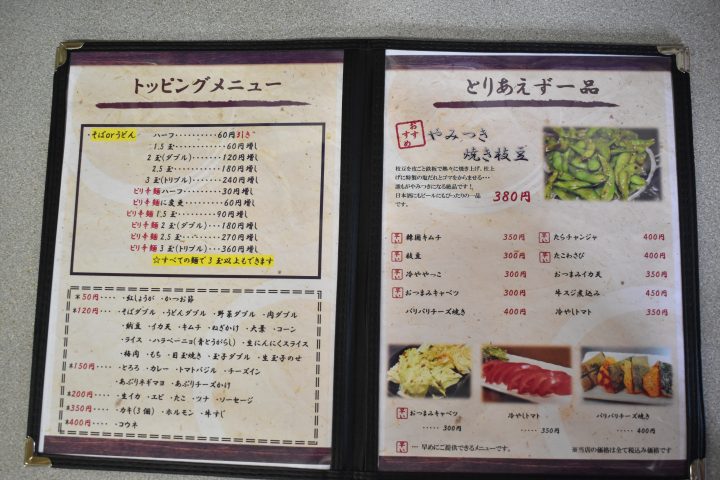 トッピングメニュー
そばorうどん ハーフ‥‥‥‥‥60円引き
1.5 玉‥‥‥‥‥60円増し
2 玉(ダブル)‥‥‥120円増し
2.5 玉‥‥‥‥‥180円増し
3 玉(トリプル)‥‥‥240円増し
ピリ辛麺 ハーフ‥‥‥‥30円増し
ピリ辛麺に変更‥‥‥‥60円増し
ピリ辛麺 1.5 玉‥‥‥‥90円増し
ピリ辛麺 2 玉(ダブル)‥‥180円増し
ピリ辛麺 2.5 玉‥‥‥‥270円増し
ピリ辛麺 3 玉(トリプル)‥‥360円増し
☆すべての麺で3玉以上もできます
※50円‥‥・紅しょうが ・かつお節
※120円‥‥・そばダブル ・うどんダブル ・野菜ダブル ・肉ダブル
・納豆 ・イカ天 ・キムチ ・ねぎかけ ・大葉 ・コーン
・ライス ・ハラペーニョ(青とうがらし) ・生にんにくスライス
・梅肉 ・もち ・目玉焼き ・玉子ダブル ・生玉子のせ
※150円‥‥・とろろ ・カレー ・トマトバジル ・チーズイン
・あぶりネギマヨ ・あぶりチーズかけ
※200円‥‥・生イカ ・エビ ・たこ ・ツナ ・ソーセージ
※350円‥‥・カキ(3個) ・ホルモン ・牛すじ
※400円‥‥・コウネ
とりあえず一品
おすすめ
やみつき
焼き枝豆
枝豆を皮ごと鉄板で熱々に焼き上げ、仕上
げに特製の塩だれとゴマをからませる・・・
誰もがやみつきになる絶品です!
日本酒にもビールにもぴったりの一品
です。
380円
早い 韓国キムチ 350円
早い 枝豆 300円
早い 冷ややっこ 300円
早い おつまみキャベツ 300円
パリパリチーズ焼き 400円
早い たらチャンジャ 400円
早い たこわさび 400円
おつまみイカ天 350円
牛スジ煮込み 450円
冷やしトマト 350円
早い おつまみキャベツ
‥‥‥ 300円
冷やしトマト
‥‥‥ 350円
パリパリチーズ焼き
‥‥‥ 400円
早い … 早めにご提供できるメニューです。
※当店の価格は全て税込み価格です